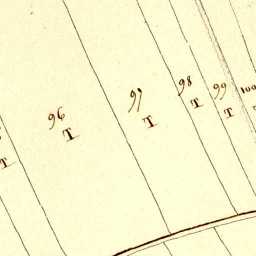 96
T
97
T
98
T
99
T
100
T